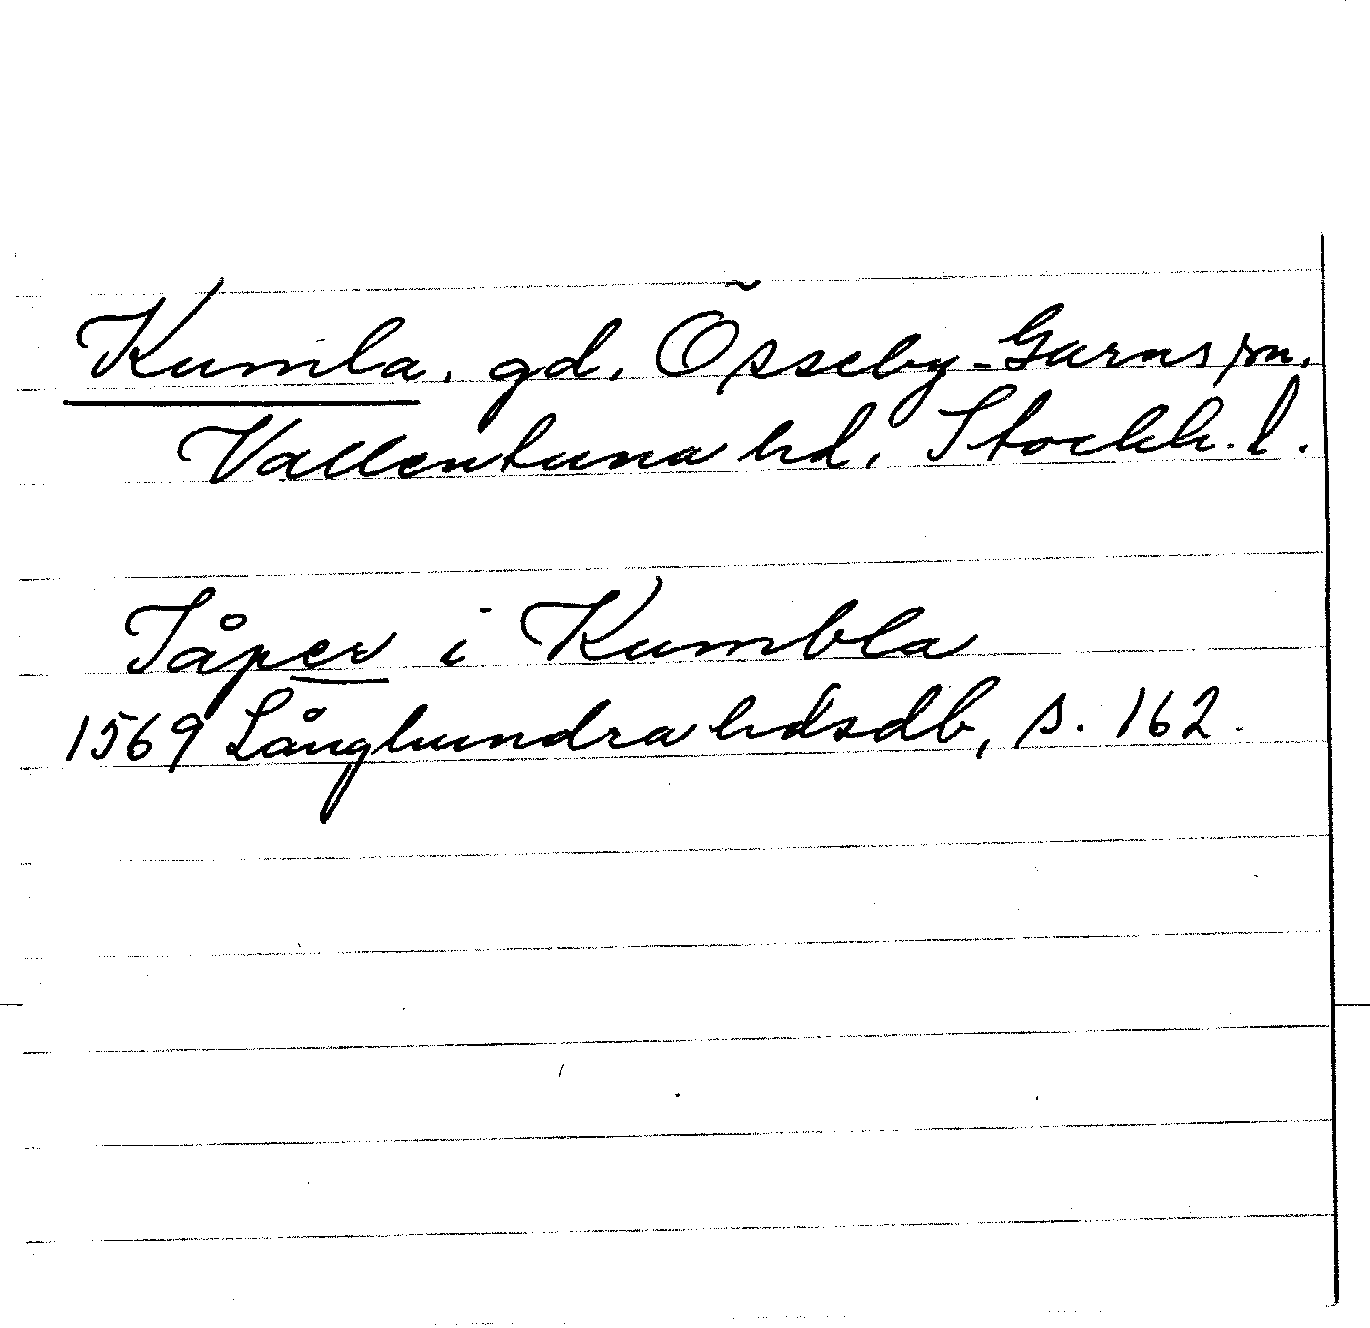 Kumla, gd, Össeby-Garns sn,
Vallentuna hd, Stockh. l.
Jåper i Kumbla
1569 Långhundra hdsdb, s. 162.